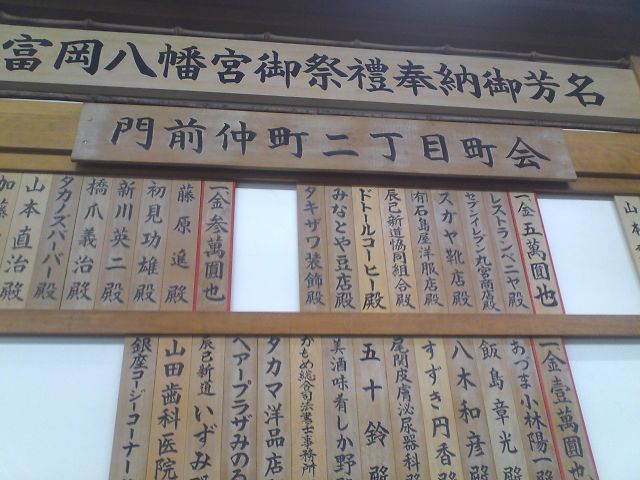 富岡八幡宮御祭禮奉納御芳名
門前仲町二丁目町会
一金五萬圓也
レストランベニヤ殿
セブンイレブン丸宮商店殿
スガヤ靴店殿
(有)石島屋洋服店殿
辰巳新道協同組合殿
ドトールコーヒー殿
みなとや豆店殿
タキザワ装飾殿
一金参萬圓也
藤原進殿
初見功雄殿
新川英二殿
橋爪義治殿
タカノズバーバー殿
山本直治殿
加藤
一金壹萬圓也
あづま小林陽一殿
飯島章光殿
八木和彦殿
すずき円香殿
尾関皮膚泌尿器科殿
五十鈴殿
美酒味肴しか野
かもめ総合司法書士事務所
タカマ洋品店
ヘアープラザみのる
辰巳新道いずみ殿
山田歯科医院
銀座コージーコーナー